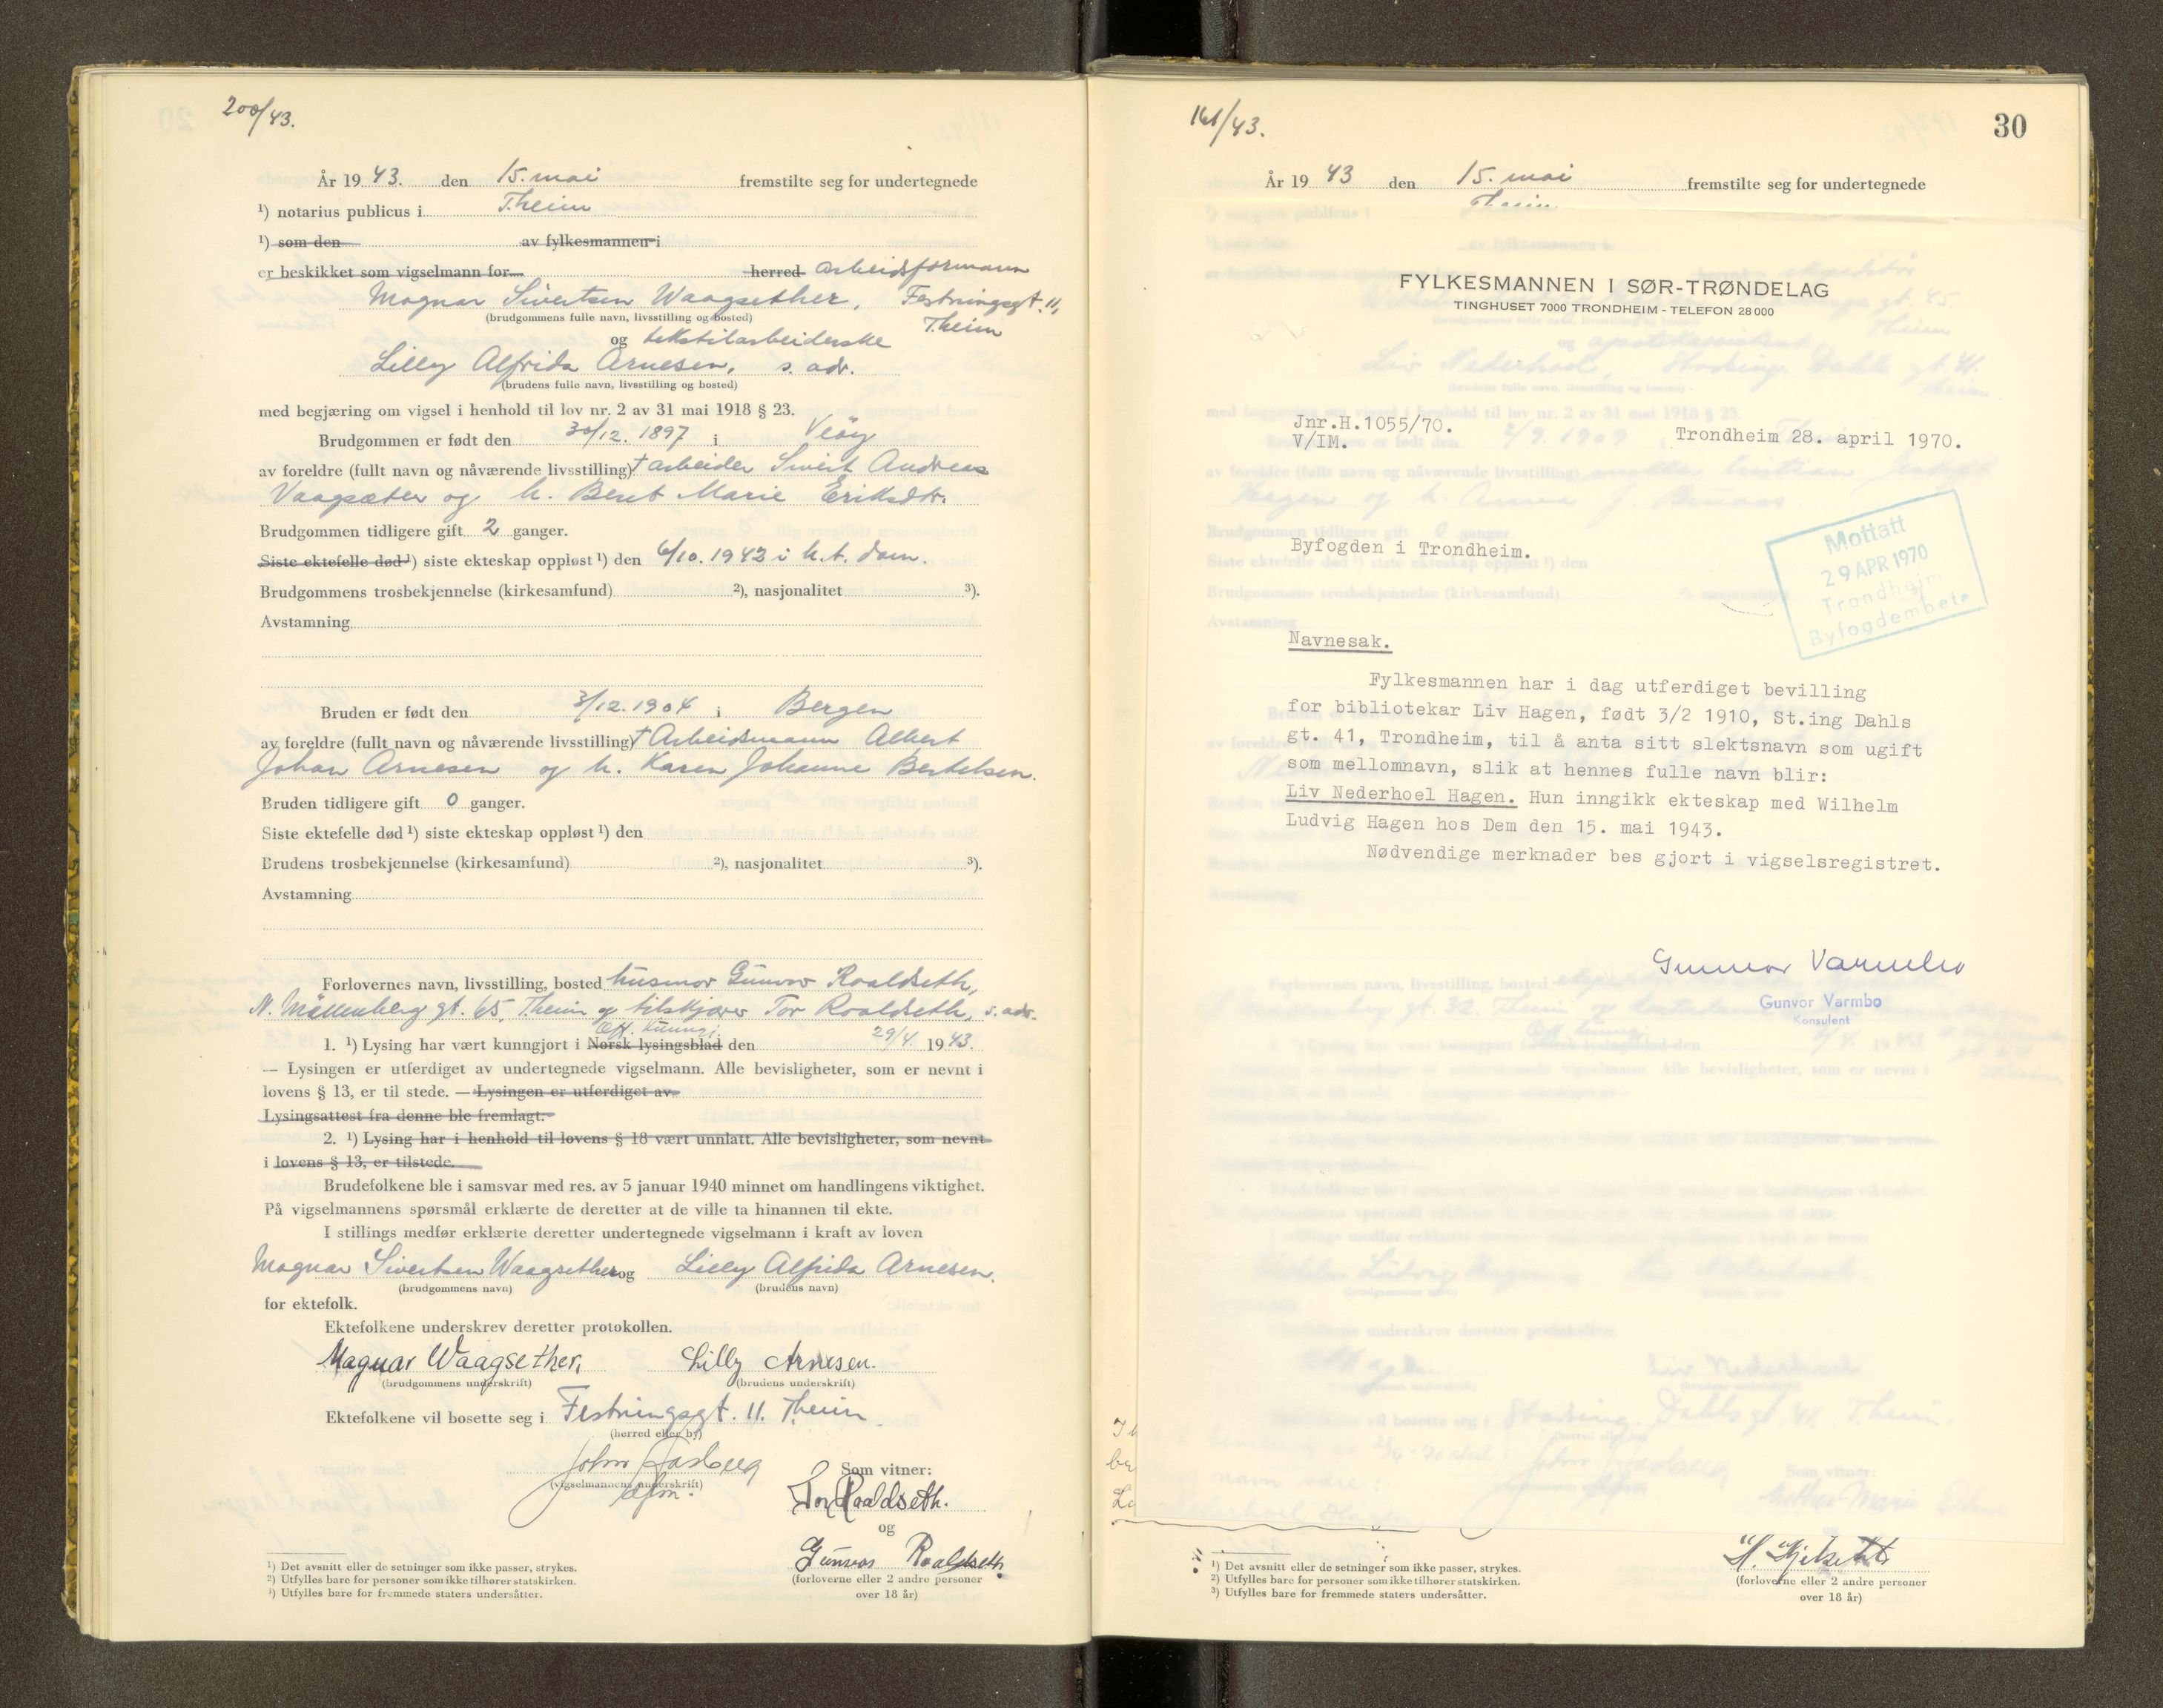 200/43.
År 19 43. den 15. mai fremstilte seg for undertegnede
¹) notarius publicus i T.heim
¹) som den av fylkesmannen i
er beskikket som vigselmann for herred arbeidsformann
Magnar Sivertsen Waagsether, Festningsgt. 11,
(brudgommens fulle navn, livsstilling og bosted) T.heim
og tekstilarbeiderske
Lilly Alfrida Arnesen, s. adr.
(brudens fulle navn, livsstilling og bosted)
med begjæring om vigsel i henhold til lov nr. 2 av 31 mai 1918 § 23.
Brudgommen er født den 30/12. 1897 i Veøy
av foreldre (fullt navn og nåværende livsstilling) † arbeider Sivert Andreas
Vaagsæter og h. Berit Marie Eriksdtr.
Brudgommen tidligere gift 2 ganger.
Siste ektefelle død ¹) siste ekteskap oppløst ¹) den 6/10. 1942 i h.t. dom.
Brudgommens trosbekjennelse (kirkesamfund) ²), nasjonalitet ³).
Avstamning
Bruden er født den 3/12. 1904 i Bergen
av foreldre (fullt navn og nåværende livsstilling) † Arbeidsmann Albert
Johan Arnesen og h. Karen Johanne Bertelsen.
Bruden tidligere gift 0 ganger.
Siste ektefelle død ¹) siste ekteskap oppløst ¹) den
Brudens trosbekjennelse (kirkesamfund) ²), nasjonalitet ³).
Avstamning
Forlovernes navn, livsstilling, bosted husmor Gunvor Roaldseth,
N. Møllenberg gt. 65, T.heim og tilskjærer Tor Roaldseth, s. adr.
Off. kunngj.
1. ¹) Lysing har vært kunngjort i Norsk lysingsblad den 29/4. 19 43.
— Lysingen er utferdiget av undertegnede vigselmann. Alle bevisligheter, som er nevnt i
lovens § 13, er til stede. — Lysingen er utferdiget av
Lysingsattest fra denne ble fremlagt.
2. ¹) Lysing har i henhold til lovens § 18 vært unnlatt. Alle bevisligheter, som nevnt
i lovens § 13, er tilstede.
Brudefolkene ble i samsvar med res. av 5 januar 1940 minnet om handlingens viktighet.
På vigselmannens spørsmål erklærte de deretter at de ville ta hinannen til ekte.
I stillings medfør erklærte deretter undertegnede vigselmann i kraft av loven
Magnar Sivertsen Waagsether og Lilly Alfrida Arnesen.
(brudgommens navn) (brudens navn)
for ektefolk.
Ektefolkene underskrev deretter protokollen.
Magnar Waagsether, Lilly Arnesen.
(brudgommens underskrift) (brudens underskrift)
Ektefolkene vil bosette seg i Festningsgt. 11. T.heim
(herred eller by)
(vigselmannens underskrift)
Som vitner:
Tor Roaldseth.
og
Gunvor Roaldseth.
(forloverne eller 2 andre personer
over 18 år)
¹) Det avsnitt eller de setninger som ikke passer, strykes.
²) Utfylles bare for personer som ikke tilhører statskirken.
³) Utfylles bare for fremmede staters undersåtter.
161/43.
30
År 19 43 den 15. mai fremstilte seg for undertegnede
T.heim
FYLKESMANNEN I SØR-TRØNDELAG
TINGHUSET 7000 TRONDHEIM - TELEFON 28 000
Jnr.H.1055/70.
V/IM.
Trondheim 28. april 1970.
Byfogden i Trondheim.
Mottatt
29 APR 1970
Trondheim
Byfogdembete
Navnesak.
Fylkesmannen har i dag utferdiget bevilling
for bibliotekar Liv Hagen, født 3/2 1910, St.ing Dahls
gt. 41, Trondheim, til å anta sitt slektsnavn som ugift
som mellomnavn, slik at hennes fulle navn blir:
Liv Nederhoel Hagen. Hun inngikk ekteskap med Wilhelm
Ludvig Hagen hos Dem den 15. mai 1943.
Nødvendige merknader bes gjort i vigselsregistret.
Gunvor Varmbo
Gunvor Varmbo
Konsulent
¹) Det avsnitt eller de setninger som ikke passer, strykes.
²) Utfylles bare for personer som ikke tilhører statskirken.
³) Utfylles bare for fremmede staters undersåtter.
(forloverne eller 2 andre personer
over 18 år)